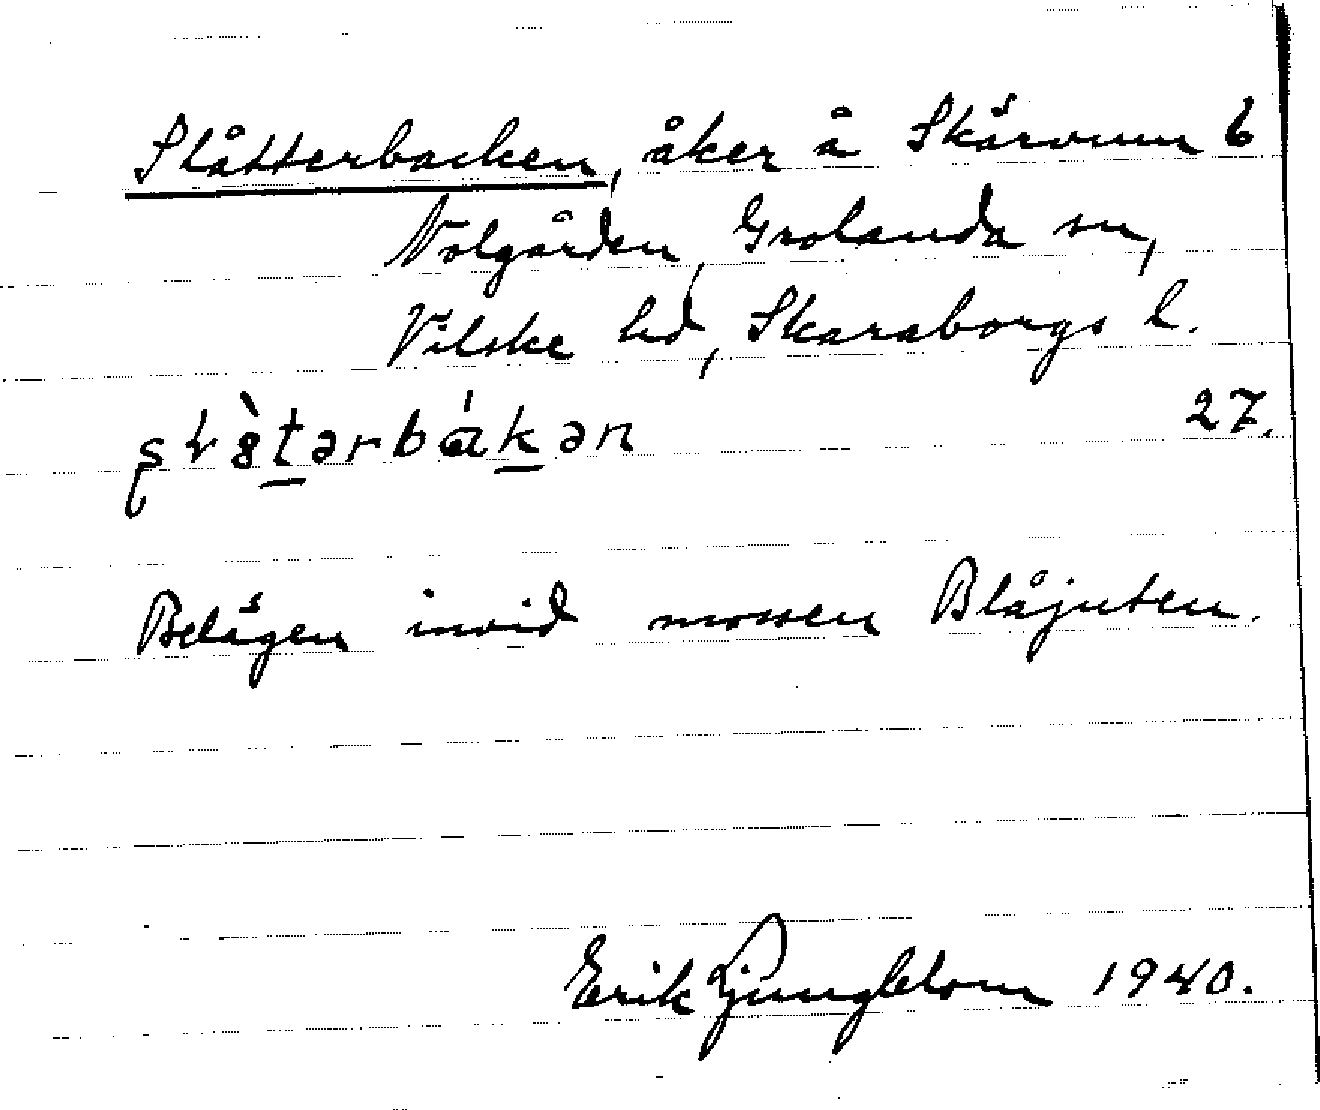 Slåtterbacken, åker å Skärvum 6
Nolgården, Grolanda sn,
Vilske hd, Skaraborgs l.
27.
Belägen invid mossen Blåjuten.
Erik Ljungblom 1940.